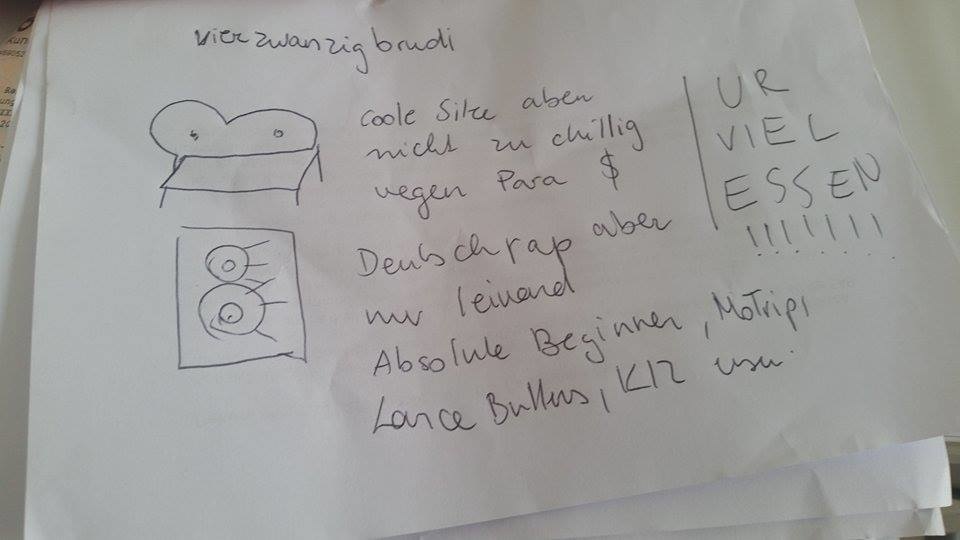 vierzwanzigbrudi
coole Sitze aber
nicht zu chillig
wegen Para $
UR
VIEL
ESSEN
!!!!!!!
Deutschrap aber
nur leinand
Absolute Beginner, MoTrip,
Lance Butters, KIZ usw.